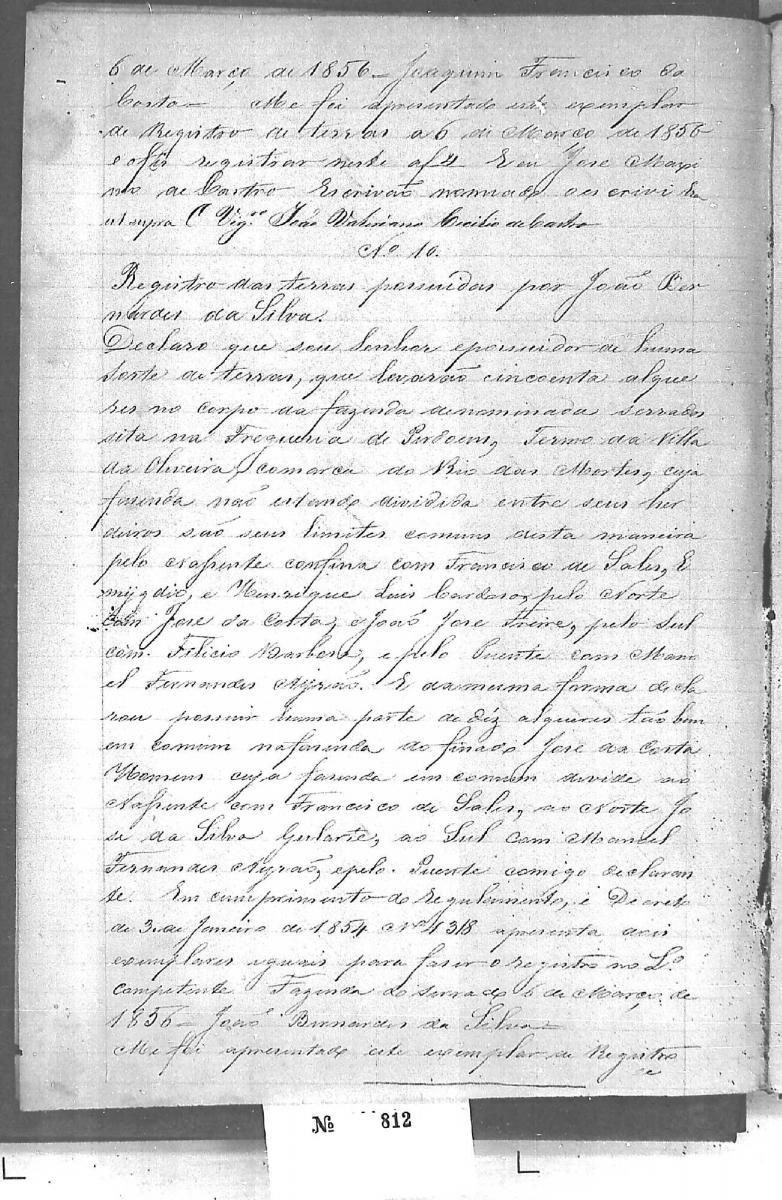 6 de Março de 1856 – Joaquim Francisco da
Costa – Me foi apresentado este exemplar
de Registro de terras a 6 de Março de 1856
e o fis registrar neste af 4 Eu Jose Maxi
mo de Castro Escrivão nomeado o escrivi Era
ut supra O Vigr.º João Valeriano Cecilio de Castro
Nº 10.
Registro das terras possuidas por João Ber
nardes da Silva.
Declaro que sou Senhor e possuidor de huma
Sorte de terras, que levarão cincoenta alque
res no corpo da fazenda denominada serrado
sita na Freguesia de Perdoens, Termo da Villa
da Oliveira, comarca do Rio das Mortes, cuja
fazenda não estando dividida entre seus her
deiros são seus limites comuns desta maneira
pelo Nassente confina com Francisco de Sales, E
mygdio, e Henrique Luis Cardoso, pelo Norte
com Jose da Costa, e João Jose Freire, pelo Sul
com. Felicio Barbosa, e pelo Puente com Mano
el Fernandes Ayrão. E da mesma forma decla
rou possuir huma parte de déz alqueires tão bem
em comum na fasenda do finado Jose da Costa
Homem cuja fasenda em comum divide ao
Nassente com Francisco de Sales, ao Norte Jo
se da Silva Gularte, ao Sul com Manoel
Fernandes Ayrão, e pelo. Puente comigo declaran
te. Em cumprimento do regulamento, e Decreto
de 3. de Janeiro de 1854 Nº 1318 apresenta dois
exemplares iguais para faser o registro no L.º
competente Fazenda do serrado 6 de Março de
1856 – João Bernardes da Silva –
Me foi apresentado este exemplar de Registro
de
Nº 812